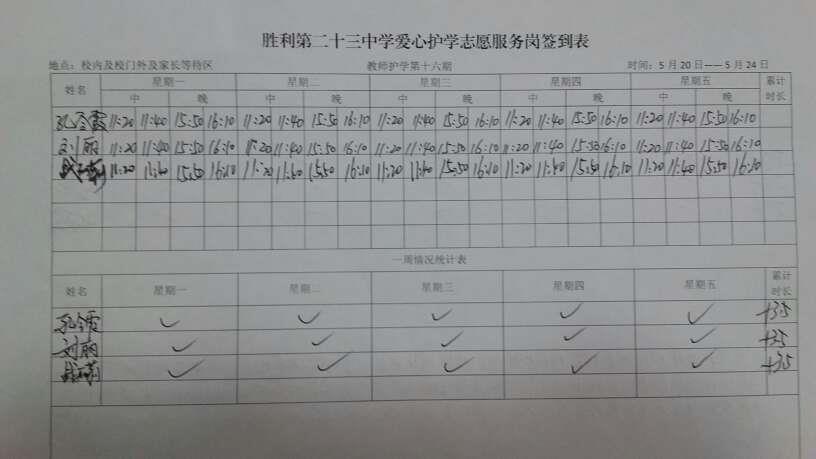 胜利第二十三中学爱心护学志愿服务岗签到表
地点：校内及校门外及家长等待区 教师护学第十六期 时间：5月20日——5月24日
姓名 星期一 星期二 星期三 星期四 星期五 累计时长
中 晚 中 晚 中 晚 中 晚 中 晚
11:20 11:40 15:50 16:10 11:20 11:40 15:50 16:10 11:20 11:40 15:50 16:10 11:20 11:40 15:50 16:10 11:20 11:40 15:50 16:10
刘丽 11:20 11:40 15:50 16:10 11:20 11:40 15:50 16:10 11:20 11:40 15:50 16:10 11:20 11:40 15:50 16:10 11:20 11:40 15:50 16:10
11:20 11:40 15:50 16:10 11:20 11:40 15:50 16:10 11:20 11:40 15:50 16:10 11:20 11:40 15:50 16:10 11:20 11:40 15:50 16:10
一周情况统计表
姓名 星期一 星期二 星期三 星期四 星期五 累计时长
✓ ✓ ✓ ✓ ✓ +3.5
刘丽 ✓ ✓ ✓ ✓ ✓ +3.5
✓ ✓ ✓ ✓ ✓ +3.5